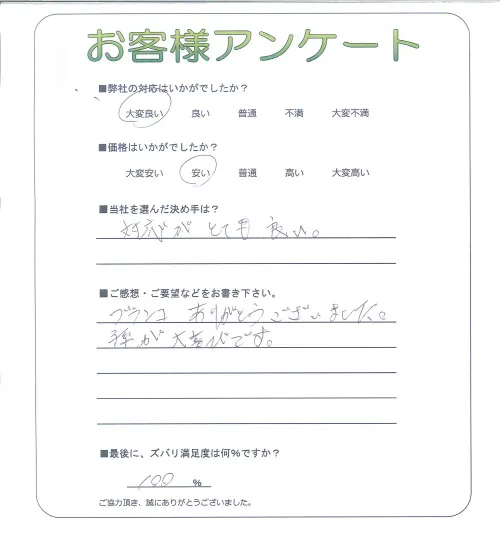 お客様アンケート
■弊社の対応はいかがでしたか？
大変良い 良い 普通 不満 大変不満
■価格はいかがでしたか？
大変安い 安い 普通 高い 大変高い
■当社を選んだ決め手は？
対応が とても 良い。
■ご感想・ご要望などをお書き下さい。
ブランコ ありがとうございました。
孫が 大喜びです。
■最後に、ズバリ満足度は何%ですか？
100 %
ご協力頂き、誠にありがとうございました。